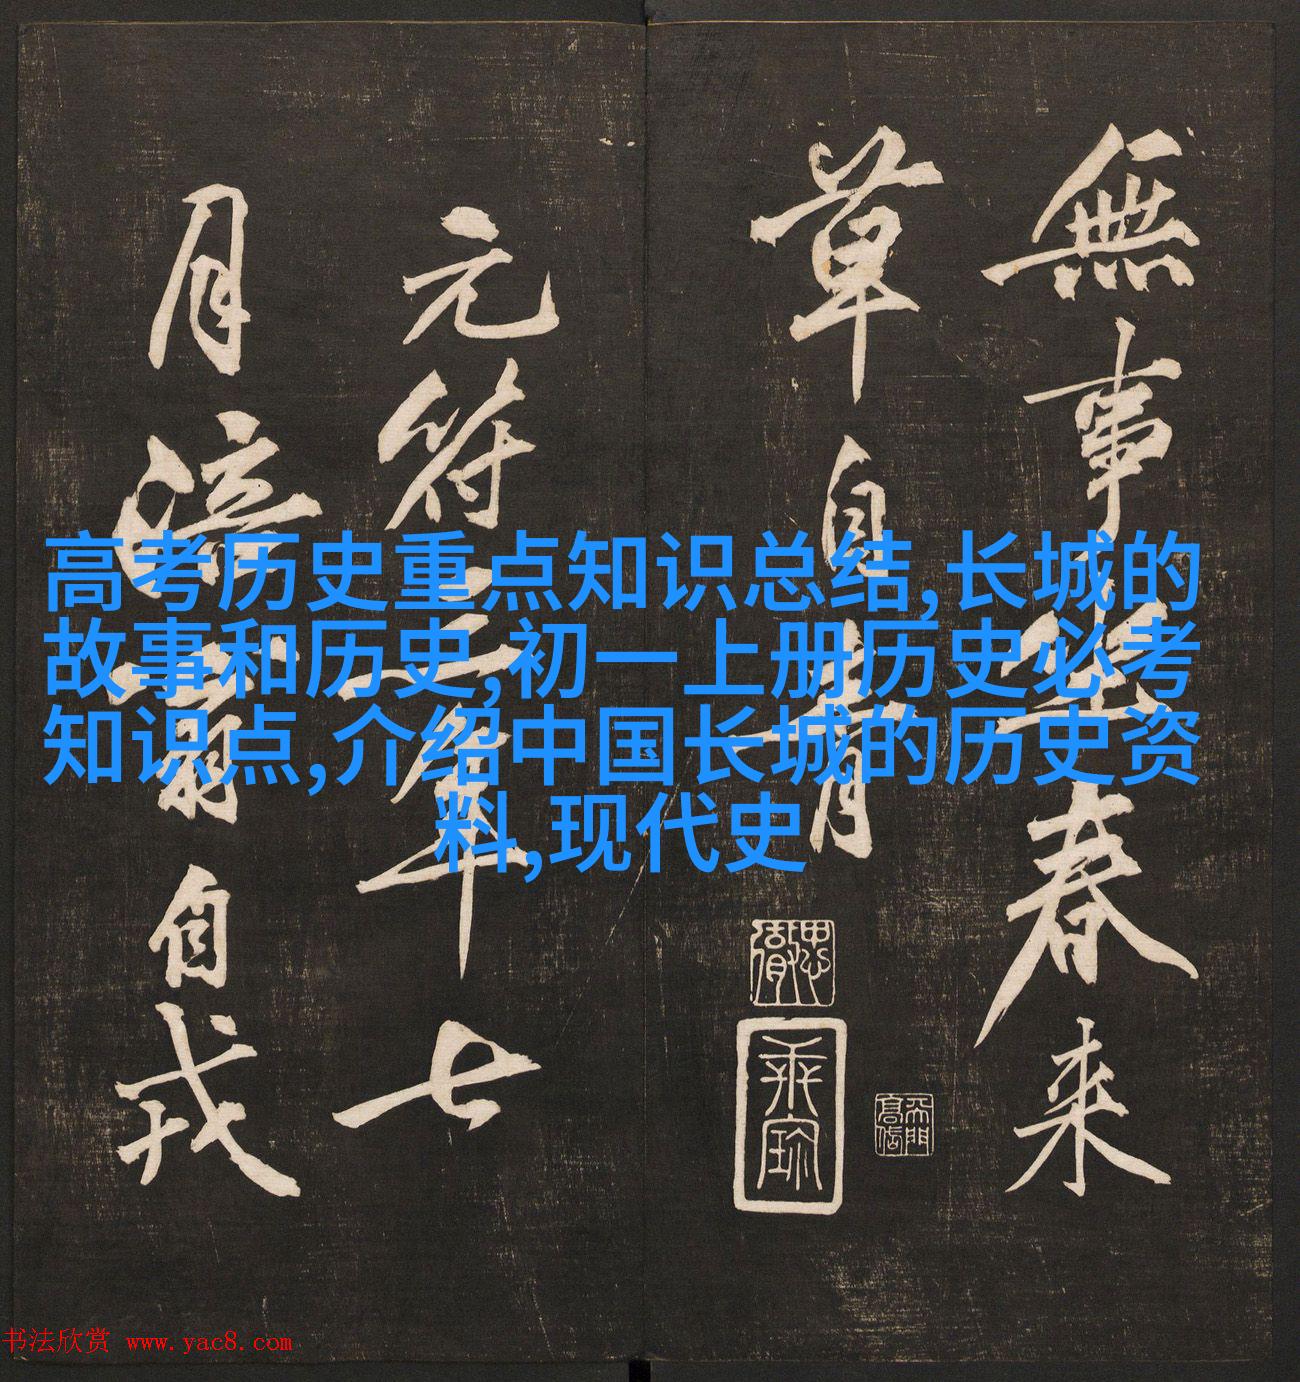 無事坐春来
草自青
元符三年七
月涪翁自戎
高考历史重点知识总结,长城的
故事和历史,初一上册历史必考
知识点,介绍中国长城的历史资
料,现代史
书法欣赏 www.yac8.com